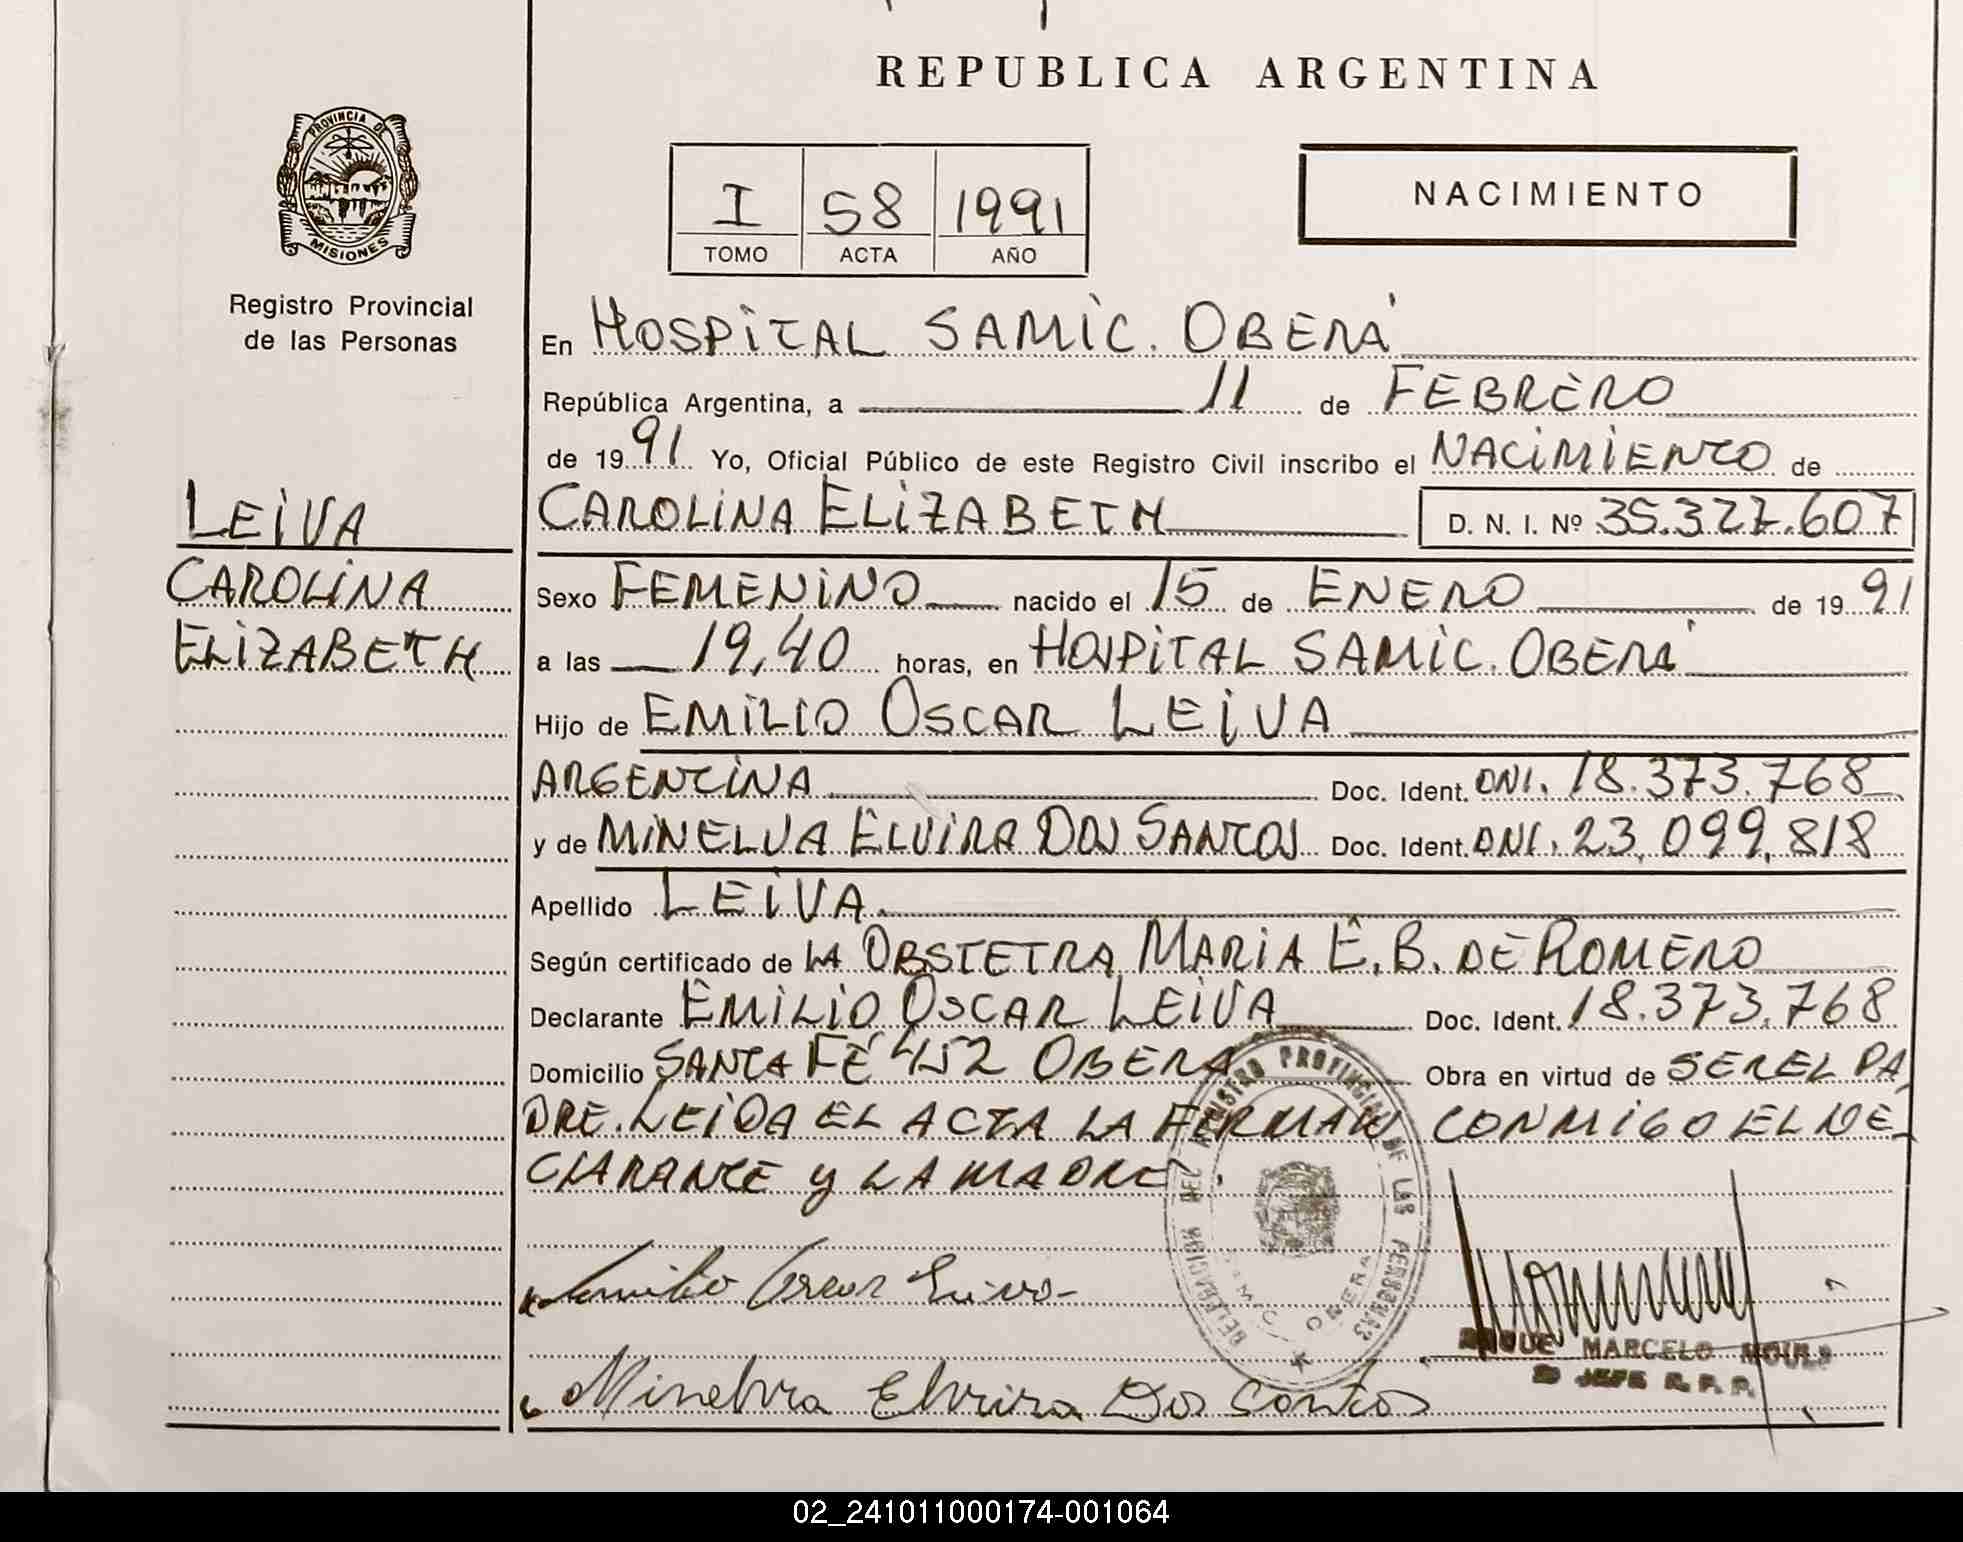 REPUBLICA ARGENTINA
PROVINCIA DE
MISIONES
Registro Provincial
de las Personas
I 58 1991
TOMO ACTA AÑO
NACIMIENTO
En HOSPITAL SAMIC. OBERÁ
República Argentina, a 11 de FEBRERO
de 1991 Yo, Oficial Público de este Registro Civil inscribo el NACIMIENTO de
LEIVA
CAROLINA ELIZABETH D. N. I. Nº 35.327.607
CAROLINA
Sexo FEMENINO nacido el 15 de ENERO de 1991
ELIZABETH
a las 19,40 horas, en HOSPITAL SAMIC. OBERÁ
Hijo de EMILIO OSCAR LEIVA
ARGENTINA Doc. Ident. DNI. 18.373.768
y de MINELVA ELVIRA DOS SANTOS Doc. Ident. DNI. 23.099.818
Apellido LEIVA.
Según certificado de LA OBSTETRA MARIA E. B. DE ROMERO
Declarante EMILIO OSCAR LEIVA Doc. Ident. 18.373.768
Domicilio SANTA FÉ 452 OBERA Obra en virtud de SER EL PA
DRE. LEIDA EL ACTA LA FIRMAN CONMIGO EL DE-
CLARANTE y LA MADRE.
Emilio Oscar Leiva
Minelvra Elvira Dos Santos
DELEGACION DEL REGISTRO PROVINCIAL DE LAS PERSONAS
SAMIC OBERA
MARCELO
JEFE R. P. P.
02_241011000174-001064